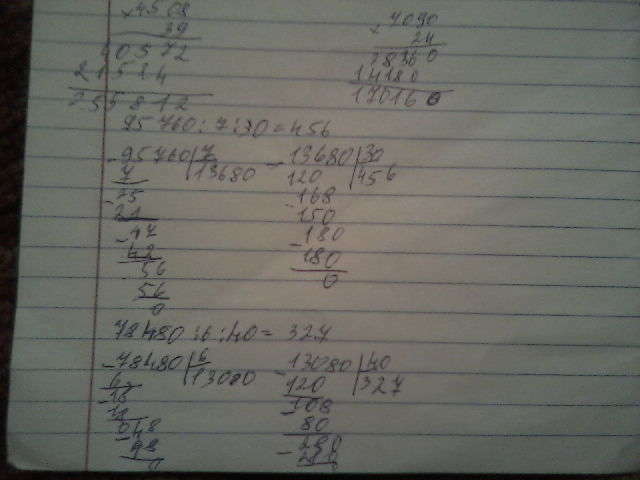 4508
39
40572
7090
24
28360
14180
170160
95760:7:30=456
-95760|7
13680
7
-25
21
-47
42
56
56
0
-13680|30
456
120
-168
150
-180
180
0
78480:6:40=327
-78480|6
13080
6
-18
18
-048
48
0
-13080|40
327
120
-108
80